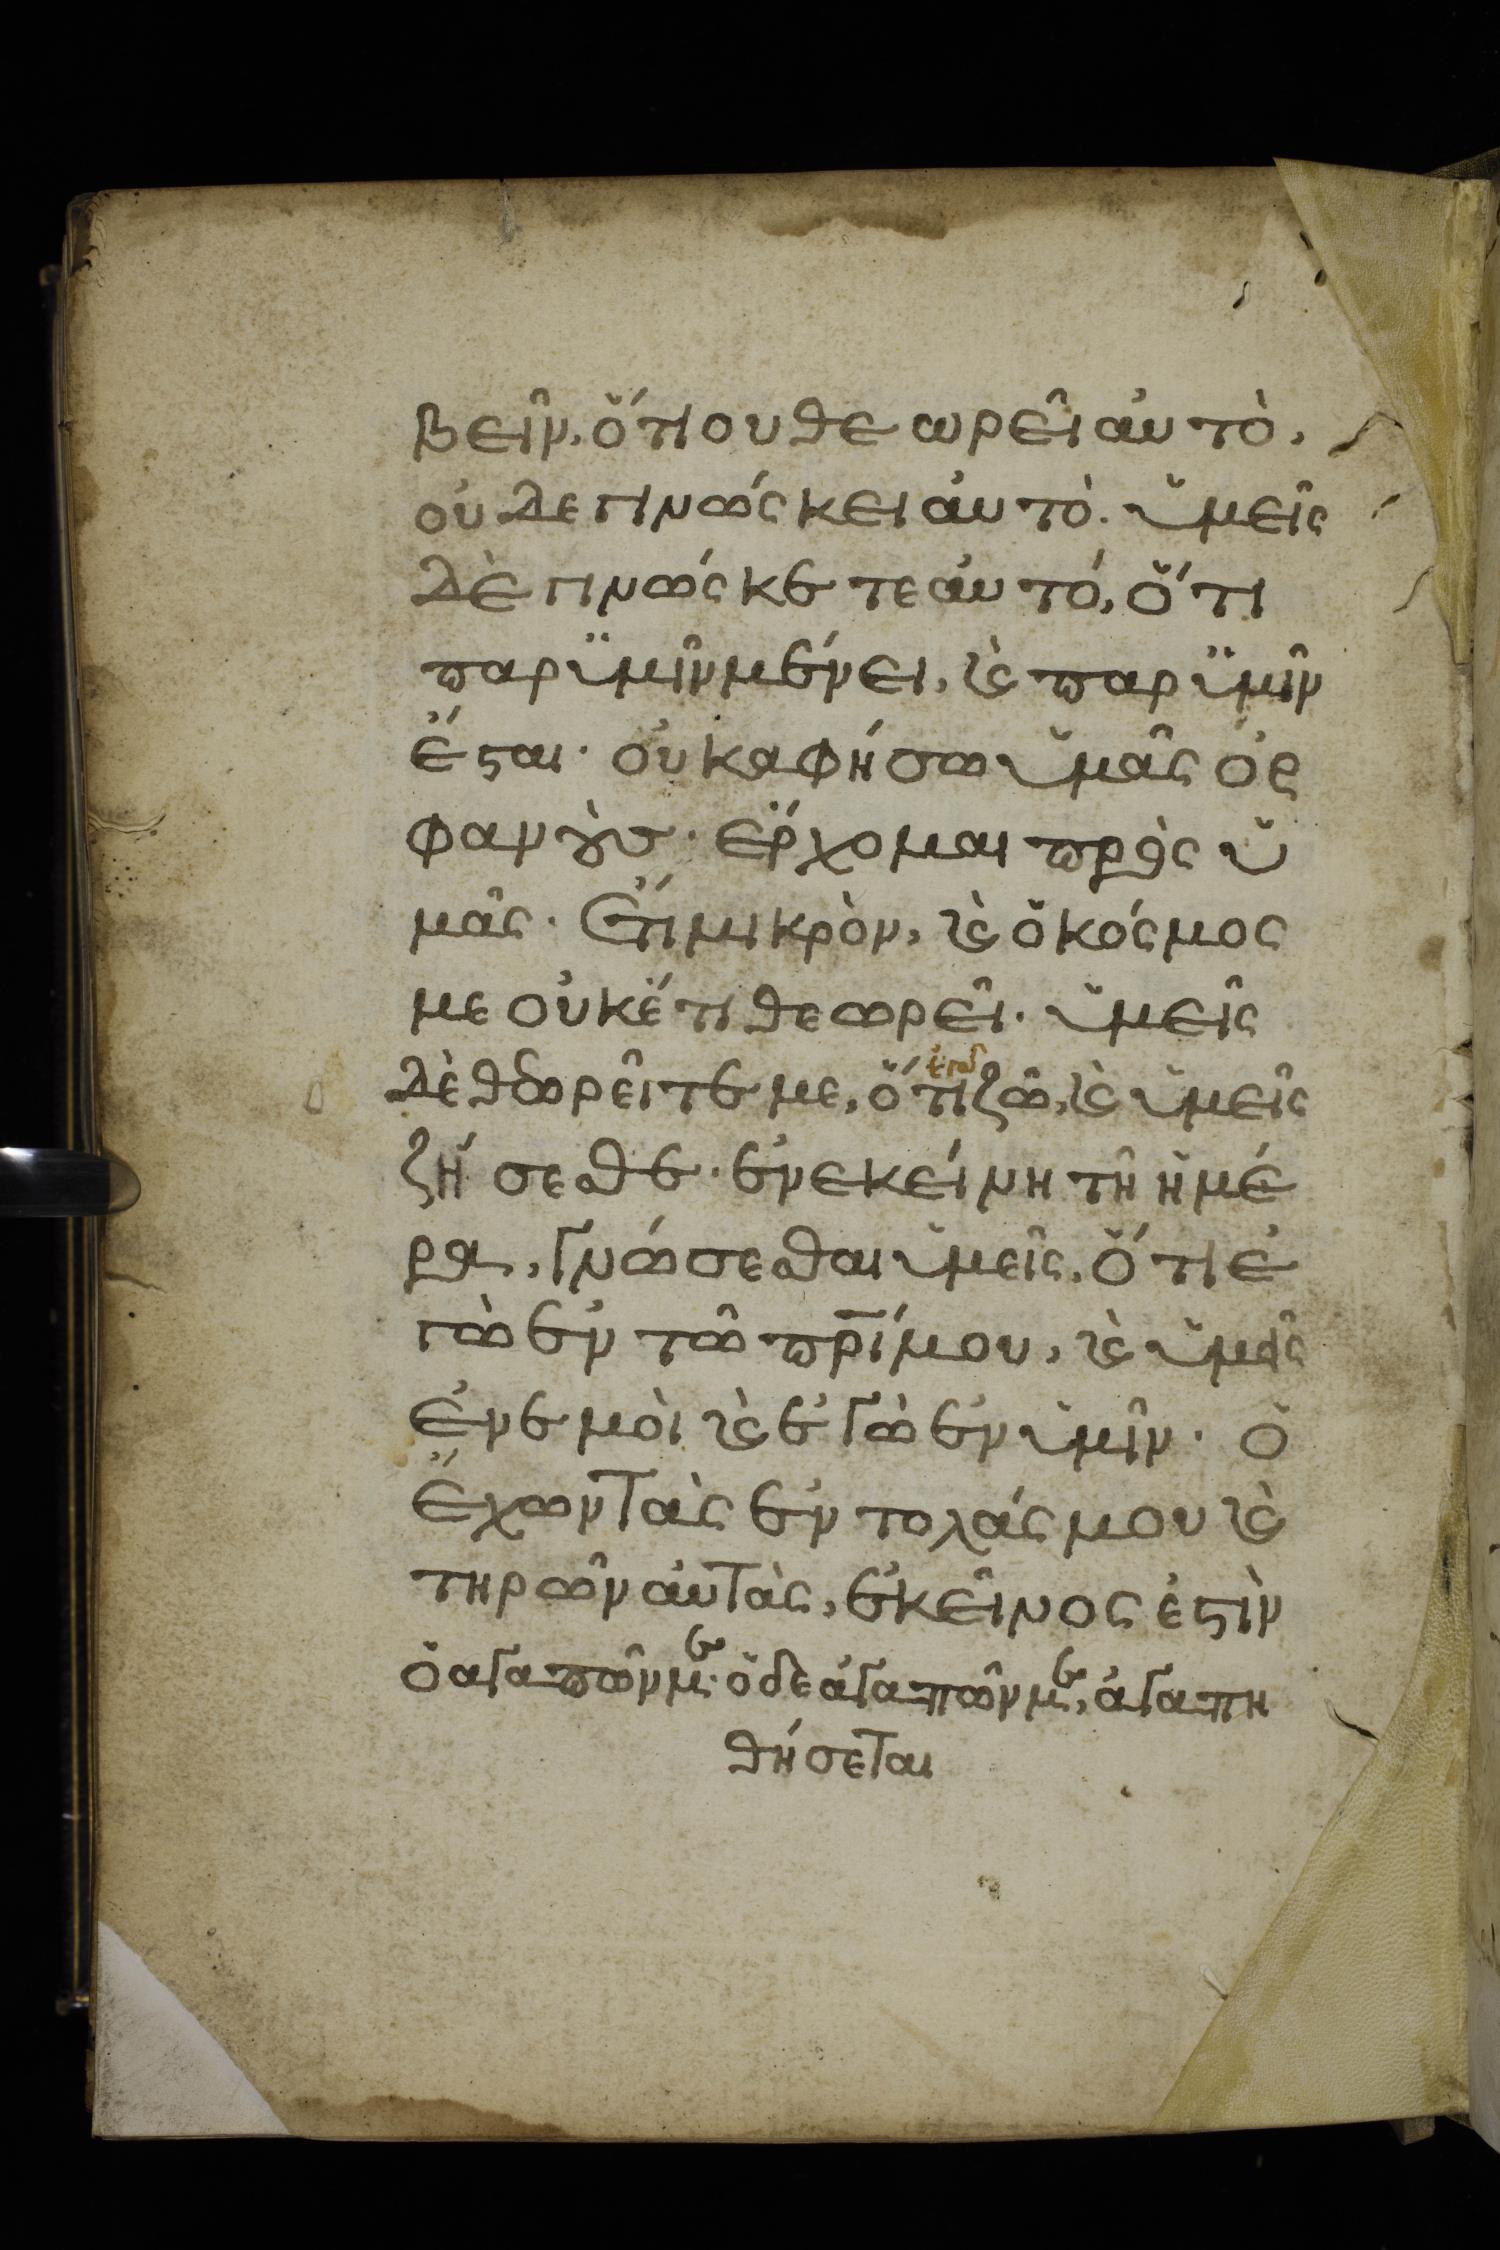 βεῖν, ὅτι ου θεωρεῖ αὐτὸ,
οὐδε γινώσκει αὐτὸ. ὑμεῖς
δὲ γινώσκετε αὐτό, ὅτι
παρ ϋμῖν μένει, κ̀ παρ ϋμῖν
ἔϛαι· οὐκ αφήσω ὑμᾶς ὀρ
φανοὺσ· ἔρχομαι πρὸς ὑ
μᾶς· Ἔτι μικρὸν, κ̀ ὁ κόσμος
με οὐκέτι θεωρεῖ· ὑμεῖς
δὲ θεωρεῖτε με, ὅτι ἐγὼ ζῶ, κ̀ ὑμεῖς
ζήσεσθε· ἐν εκείνη τῆ ἡμέ
ρα, γνώσεσθαι ὑμεῖς, ὅτι ἐ
γὼ ἐν τῶ πρ̅ί μου, κ̀ ὑμεῖς
ἐν εμοὶ κ̀ ἐγὼ ἐν ὑμῖν· ὁ
ἔχων τὰς ἐντολάς μου κ̀
τηρῶν αὐτὰς, ἐκεῖνος ἐϛὶν
ὁ αγαπῶν με· ὁ δε ἀγαπῶν με, ἀγαπη
θήσεται